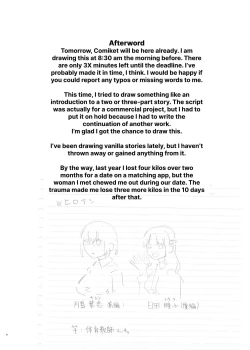 Afterword
Tomorrow, Comiket will be here already. I am
drawing this at 8:30 am the morning before. There
are only 3X minutes left until the deadline. I've
probably made it in time, I think. I would be happy if
you could report any typos or missing words to me.
This time, I tried to draw something like an
introduction to a two or three-part story. The script
was actually for a commercial project, but I had to
put it on hold because I had to write the
continuation of another work.
I'm glad I got the chance to draw this.
I've been drawing vanilla stories lately, but I haven't
thrown away or gained anything from it.
By the way, last year I lost four kilos over two
months for a date on a matching app, but the
woman I met chewed me out during our date. The
trauma made me lose three more kilos in the 10 days
after that.
ヒロイン